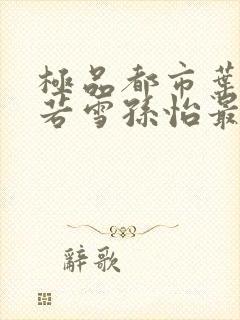 極品都市葉
若雪孫怡最
辭歌